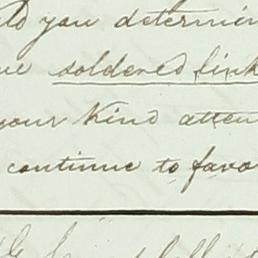 ld you determin
ve soldered link
your kind atten
continue to favo